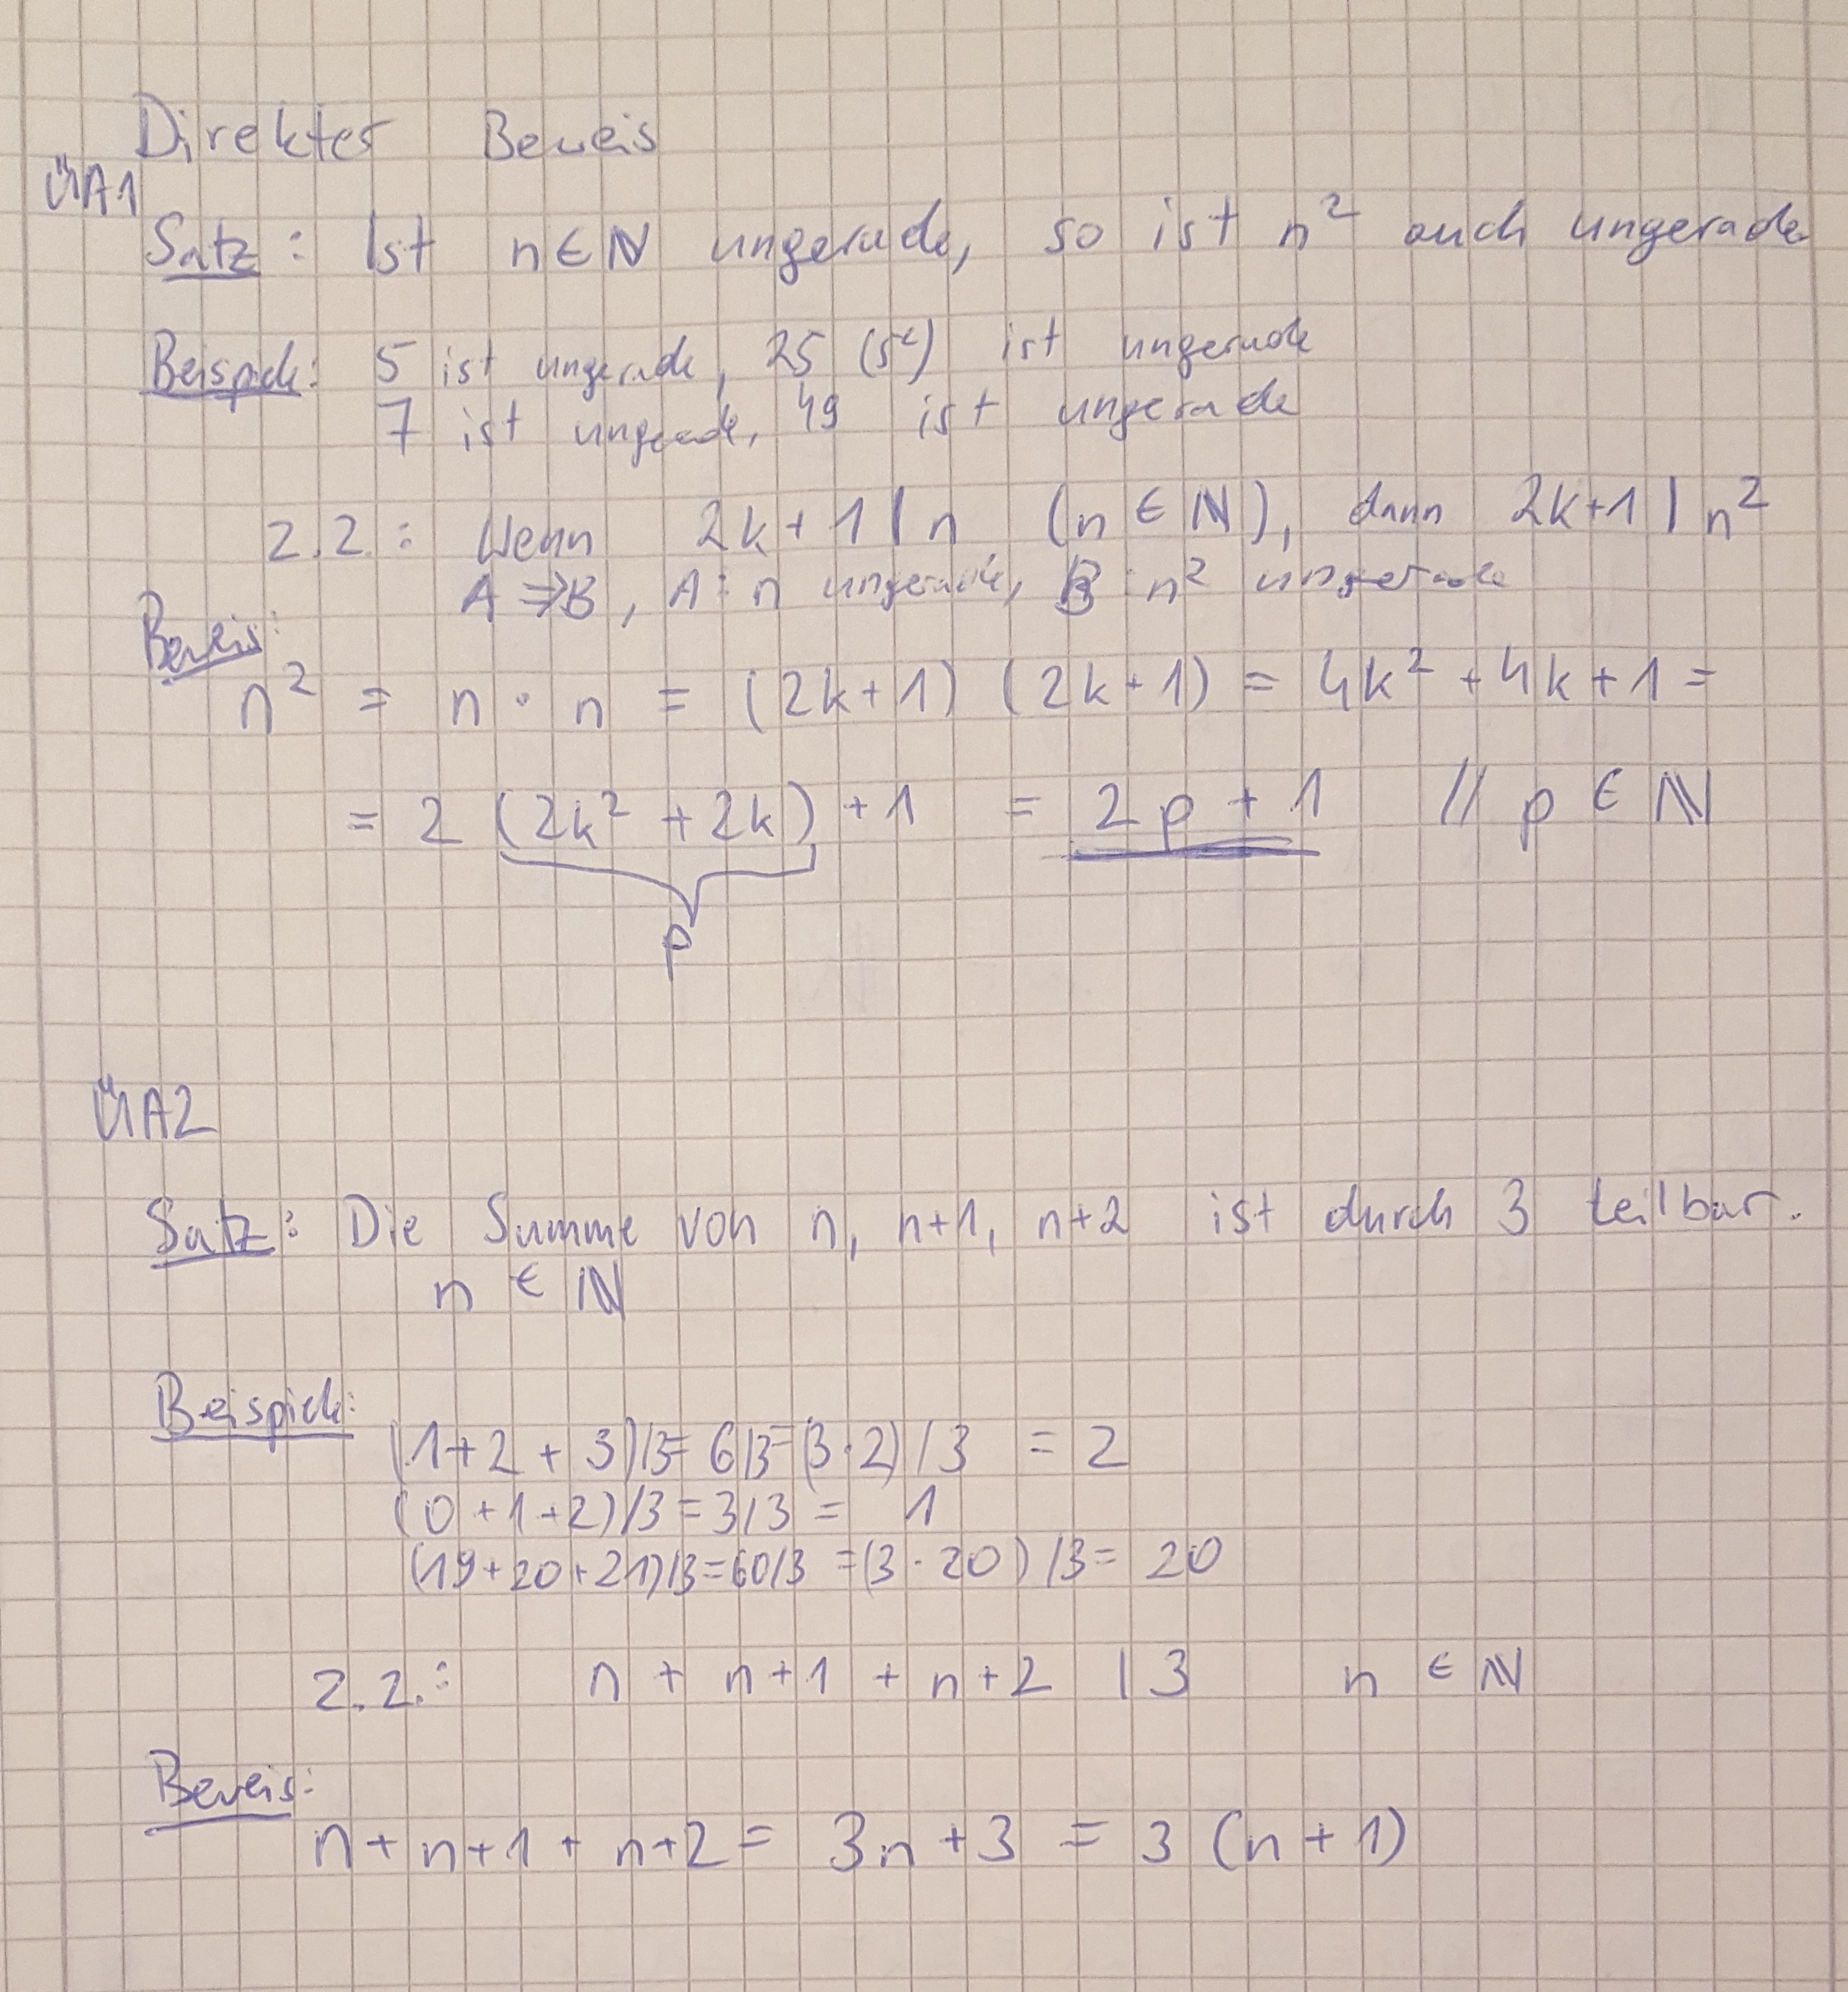 Direkter Beweis
ÜA1
Satz: Ist n ∈ ℕ ungerade, so ist n² auch ungerade
Beispiele: 5 ist ungerade, 25 (5²) ist ungerade
7 ist ungerade, 49 ist ungerade
z.z.: Wenn 2k+1 | n (n ∈ ℕ), dann 2k+1 | n²
A ⇒ B, A: n ungerade, B: n² ungerade
Beweis:
n² = n · n = (2k+1) (2k+1) = 4k² + 4k + 1 =
= 2 (2k² + 2k) + 1 = 2p + 1 // p ∈ ℕ
p
ÜA2
Satz: Die Summe von n, n+1, n+2 ist durch 3 teilbar.
n ∈ ℕ
Beispiele:
(1+2+3)/3 = 6/3 = (3·2)/3 = 2
(0+1+2)/3 = 3/3 = 1
(19+20+21)/3 = 60/3 = (3·20)/3 = 20
z.z.: n + n+1 + n+2 | 3 n ∈ ℕ
Beweis:
n + n+1 + n+2 = 3n + 3 = 3 (n+1)